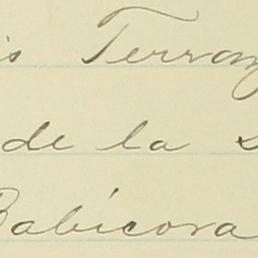 is Terraz
de la s
Babícora